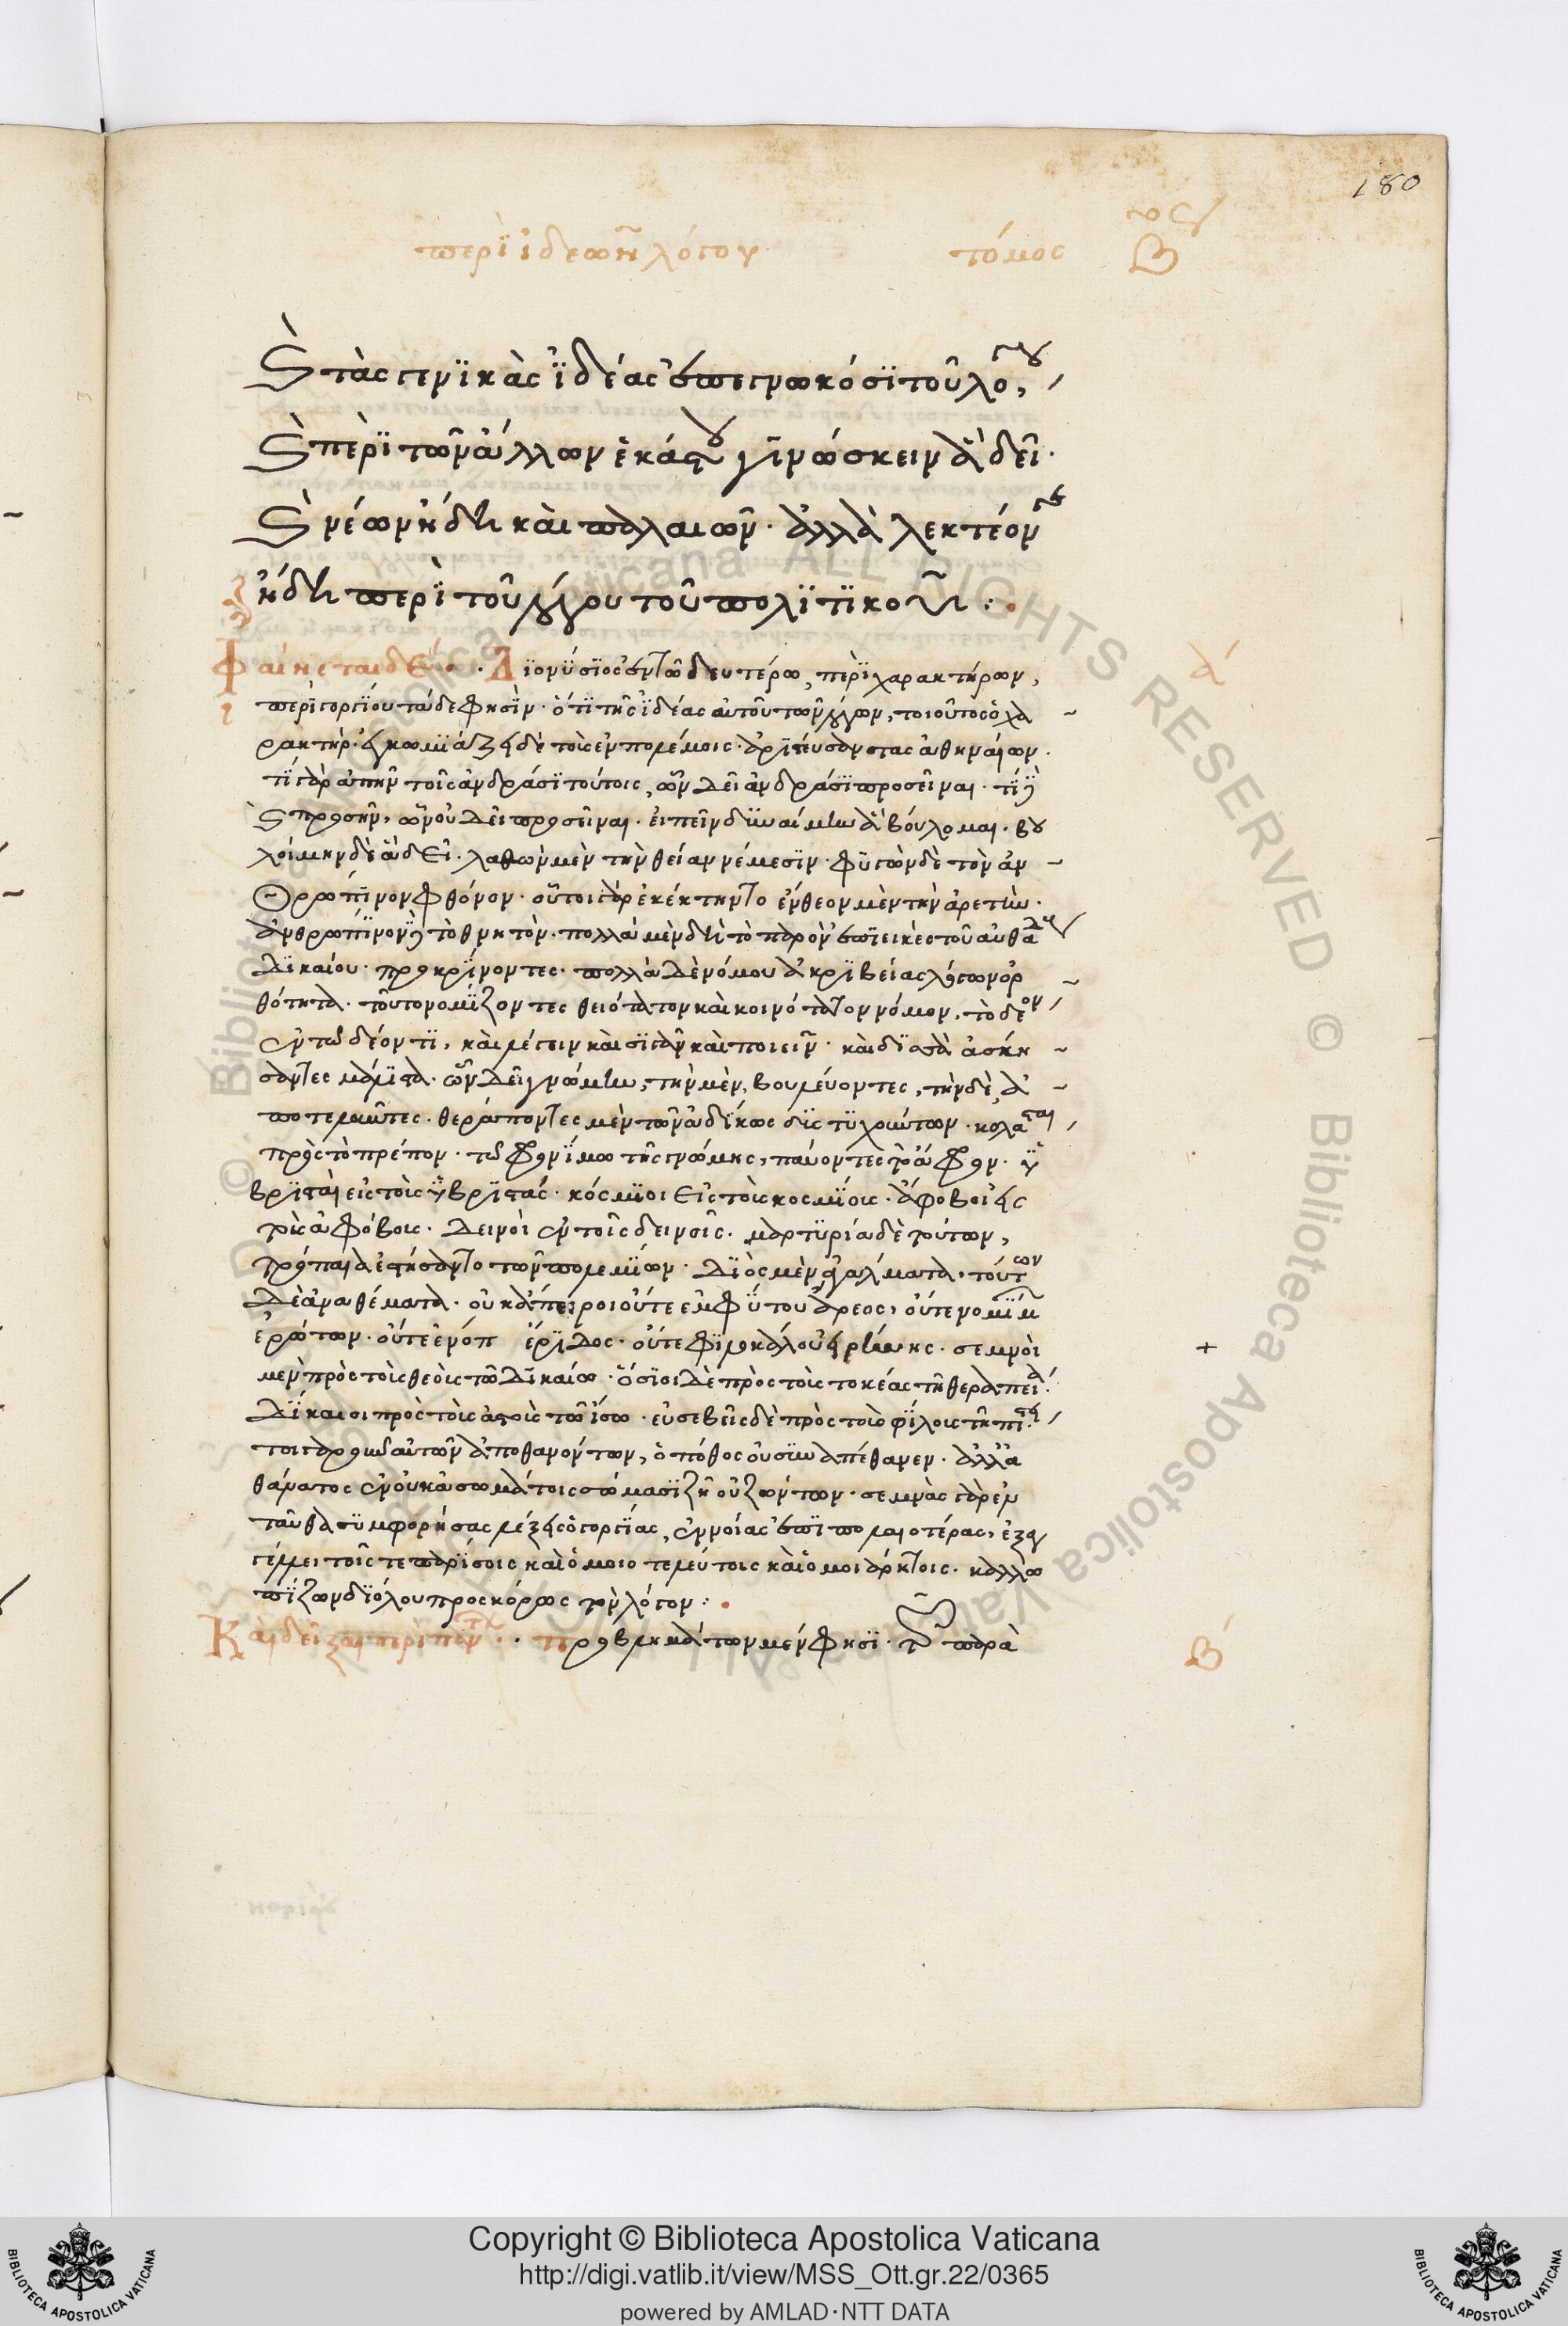 180
περὶ ἰδεῶν λόγου τόμος Β
καὶ τὰς γενικὰς ἰδέας ἐπεγνωκόσι τοῦ λόγου,
καὶ περὶ τῶν ἄλλων ἑκάστου γινώσκειν ἃ δεῖ·
καὶ νέων ἤδη καὶ παλαιῶν· ἀλλὰ λεκτέον
ἤδη περὶ τοῦ λόγου τοῦ πολιτικοῦ :
Διονύσιος ἐν τῷ δευτέρῳ, περὶ χαρακτήρων, α
περὶ γοργίου τάδε φησίν· ὅτι τῆς ἰδέας αὐτοῦ τῶν λόγων, τοιοῦτος ὁ χα
ρακτήρ· ἐγκωμιάζει δὲ τοὺς ἐν πολέμοις ἀριστεύσαντας ἀθηναίων·
τί γὰρ ἀπῆν τοῖς ἀνδράσι τούτοις, ὧν δεῖ ἀνδράσι προσεῖναι· τί δὲ
καὶ προσῆν, ὧν οὐ δεῖ προσεῖναι· εἰπεῖν δυναίμην ἃ βούλομαι· βου
λοίμην δὲ ἃ δεῖ· λαθὼν μὲν τὴν θείαν νέμεσιν· φυγὼν δὲ τὸν ἀν
θρώπινον φθόνον· οὗτοι γὰρ ἐκέκτηντο ἔνθεον μὲν τὴν ἀρετήν·
ἀνθρώπινον δὲ τὸ θνητόν· πολλὰ μὲν δὴ τὸ παρὸν ἐπιεικὲς τοῦ αὐθάδους
δικαίου· προκρίνοντες· πολλὰ δὲ νόμου ἀκριβείας λόγων ὀρ
θότητα· τοῦτον νομίζοντες θειότατον καὶ κοινότατον νόμον, τὸ δέον
ἐν τῷ δέοντι, καὶ λέγειν καὶ σιγᾶν καὶ ποιεῖν· καὶ δισσὰ ἀσκή
σαντες μάλιστα· ὧν δεῖ γνώμην, τὴν μὲν, βουλεύοντες, τὴν δὲ, ἀ
ποτελοῦντες· θεράποντες μὲν τῶν ἀδίκως δυστυχούντων· κολασταὶ
πρὸς τὸ πρέπον· τῷ φρονίμῳ τῆς γνώμης, παύοντες τὸ ἄφρον· ὑ
βρισταὶ εἰς τοὺς ὑβριστάς· κόσμιοι εἰς τοὺς κοσμίους· ἄφοβοι εἰς
τοὺς ἀφόβους· δεινοὶ ἐν τοῖς δεινοῖς· μαρτύρια δὲ τούτων,
τρόπαια ἐστήσαντο τῶν πολεμίων· Διὸς μὲν ἀγάλματα, τούτων
δὲ ἀναθέματα· οὐκ ἄπειροι οὔτε ἐμφύτου ἄρεος, οὔτε νομίμων
ἐρώτων· οὔτε ἐνόπ ἔριδος· οὔτε φιλοκάλου εἰρήνης· σεμνοὶ
μὲν πρὸς τοὺς θεοὺς τῷ δικαίῳ· ὅσιοι δὲ πρὸς τοὺς τοκέας τῇ θεραπείᾳ·
δίκαιοι πρὸς τοὺς ἀστοὺς τῷ ἴσῳ· εὐσεβεῖς δὲ πρὸς τοὺς φίλους τῇ πίστει·
τοιγαροῦν αὐτῶν ἀποθανόντων, ὁ πόθος οὐ συναπέθανεν· ἀλλ' ἀ
θάνατος ἐν οὐκ ἀσωμάτοις σώμασι ζῇ οὐ ζώντων· σεμνὰς γὰρ ἐν
ταῦθα συμφορήσας λέξεις ὁ γοργίας, ἐννοίας ἐπιπολαιοτέρας, ἐξαγ
γέλλει τοῖς τε παρίσοις καὶ ὁμοιοτελεύτοις καὶ ὁμοιοάρκτοις· καλλω
πίζων δι' ὅλου προσκόρως τὸν λόγον :
προβλημάτων μέν φησι· τῶν παρὰ β
Copyright © Biblioteca Apostolica Vaticana
http://digi.vatlib.it/view/MSS_Ott.gr.22/0365
powered by AMLAD·NTT DATA
BIBLIOTECA APOSTOLICA VATICANA
BIBLIOTECA APOSTOLICA VATICANA